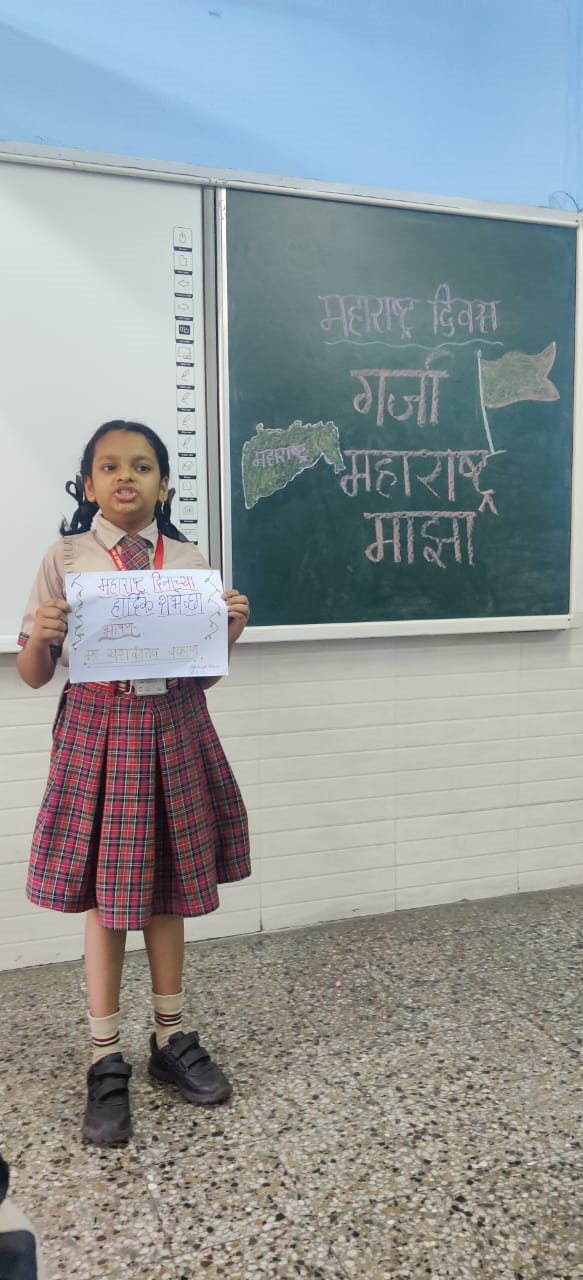 महाराष्ट्र दिवस
गर्जा
महाराष्ट्र
माझा
महाराष्ट्र
महाराष्ट्र दिनाच्या
हार्दिक शुभेच्छा
भाषण-